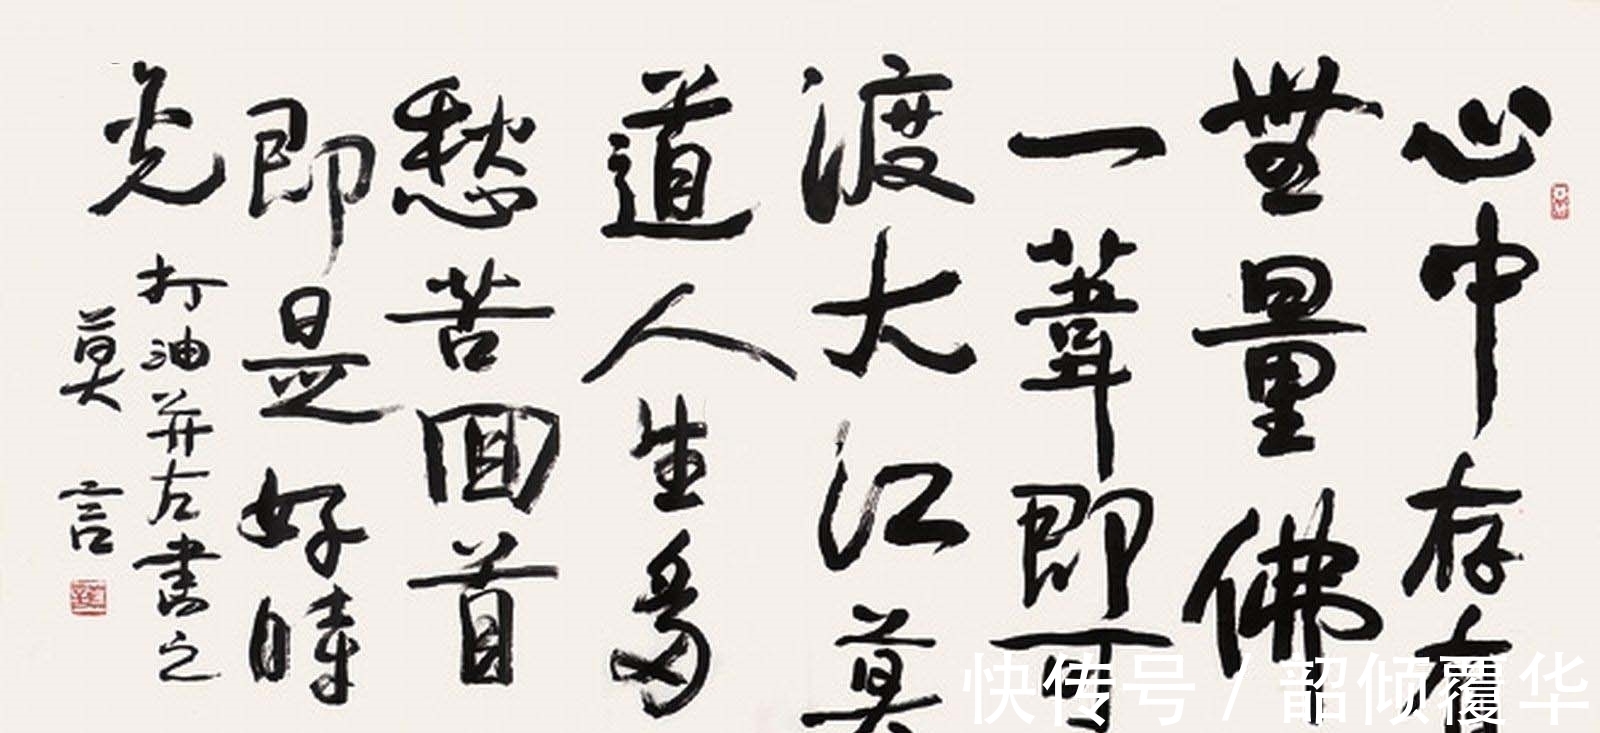 心中存有
無量佛
一葦即可
渡大江莫
道人生多
愁苦回首
即是好時
光
打油并左書之
莫言
快传号 / 韶倾覆华